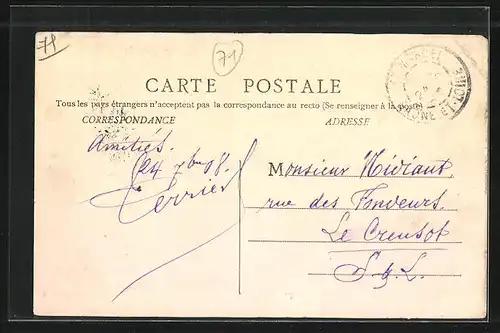 71
71
CARTE POSTALE
Tous les pays étrangers n'acceptent pas la correspondance au recto (Se renseigner à la poste)
CORRESPONDANCE
ADRESSE
Amitiés.
24 7bre 08.
Terrier
Monsieur
rue des Fondeurs.
Le Creusot
S & L.